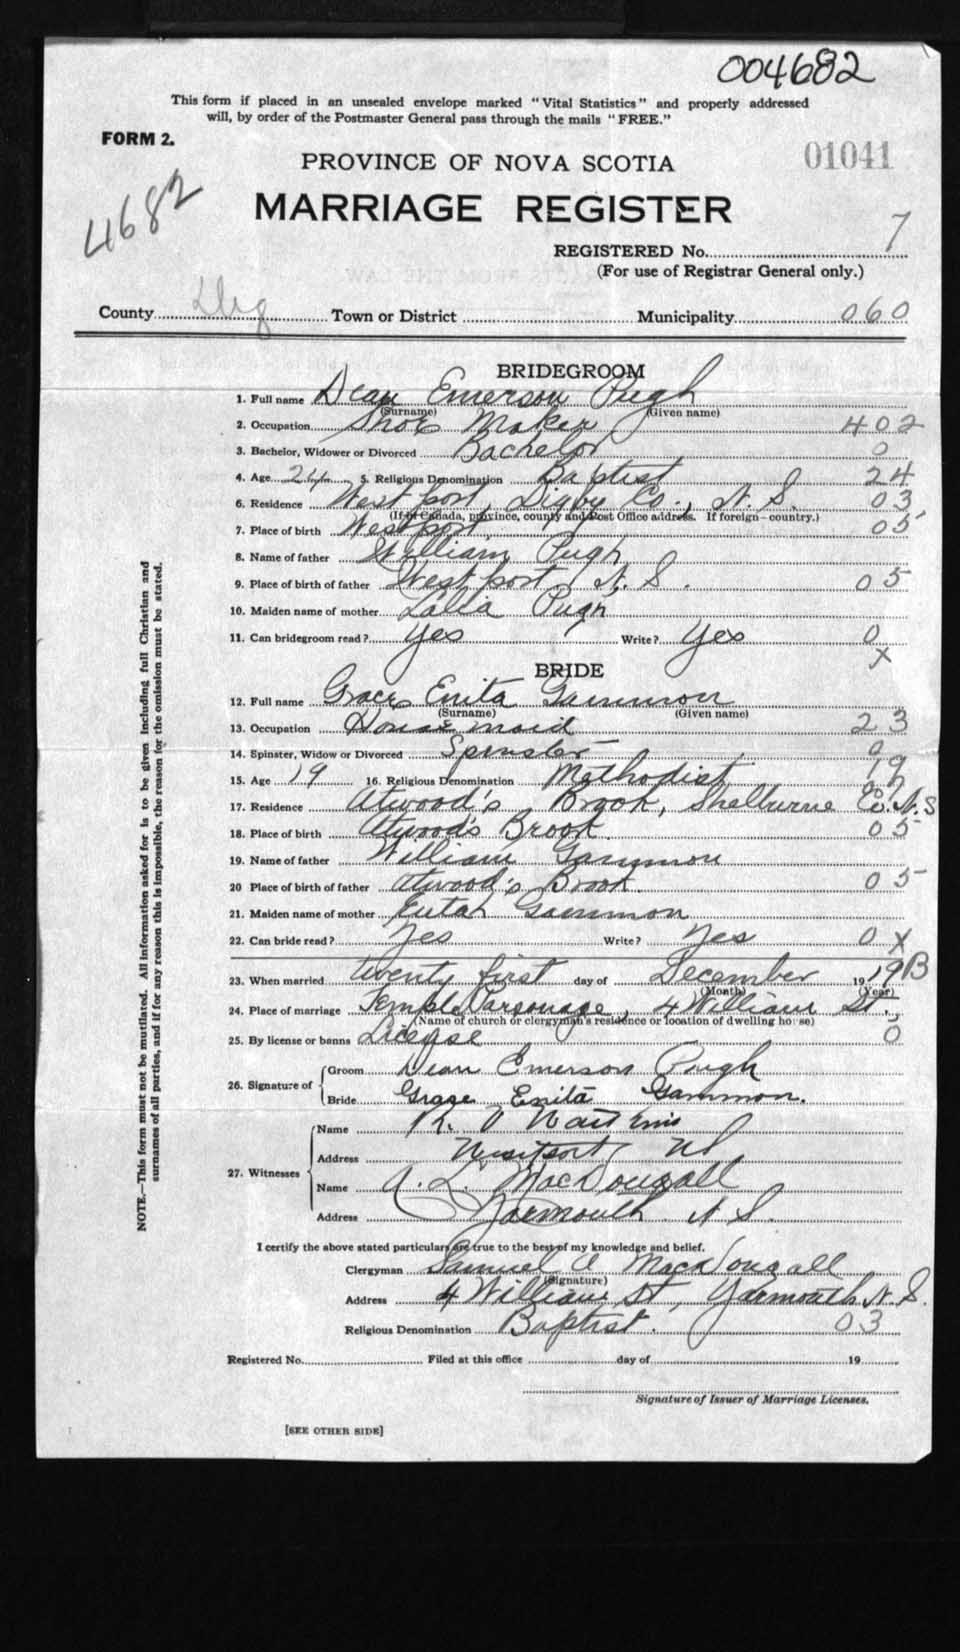 004682
This form if placed in an unsealed envelope marked "Vital Statistics" and properly addressed
will, by order of the Postmaster General pass through the mails "FREE."
FORM 2.
01041
PROVINCE OF NOVA SCOTIA
4682
MARRIAGE REGISTER
REGISTERED No. 7
(For use of Registrar General only.)
County Dig Town or District Municipality 060
BRIDEGROOM
1. Full name Dean Emerson Pugh
(Surname) (Given name)
2. Occupation Shoe Maker 402
3. Bachelor, Widower or Divorced Bachelor 0
4. Age 24 5. Religious Denomination Baptist 24
6. Residence Westport, Digby Co., N. S. 03
(If in Canada, province, county and Post Office address. If foreign—country.)
7. Place of birth Westport 05
8. Name of father William Pugh
9. Place of birth of father Westport, N. S. 05
10. Maiden name of mother Lalia Pugh
11. Can bridegroom read? Yes Write? Yes 0
X
BRIDE
12. Full name Grace Enita Gammon
(Surname) (Given name)
13. Occupation House maid 23
14. Spinster, Widow or Divorced Spinster 0
15. Age 19 16. Religious Denomination Methodist 19
17. Residence Atwood's Brook, Shelburne Co. N. S
18. Place of birth Atwood's Brook. 05
19. Name of father William Gammon
20 Place of birth of father Atwood's Brook. 05
21. Maiden name of mother Gammon
22. Can bride read? Yes Write? Yes 0 X
23. When married twenty first day of December 19 19 B
(Month) (Year)
24. Place of marriage Temple Parsonage, 4 William St.,
(Name of church or clergyman's residence or location of dwelling house)
25. By license or banns License 0
26. Signature of Groom Dean Emerson Pugh
Bride Grace Enita Gammon.
27. Witnesses
Name
Address Westport NS
Name A. L. MacDougall
Address Yarmouth N. S.
I certify the above stated particulars are true to the best of my knowledge and belief.
Clergyman Samuel A MacDougall
(Signature)
Address 4 William St, Yarmouth N. S.
Religious Denomination Baptist. 03
Registered No. Filed at this office day of 19
Signature of Issuer of Marriage Licenses.
[SEE OTHER SIDE]
NOTE.—This form must not be mutilated. All information asked for is to be given including full Christian and
surnames of all parties, and if for any reason this is impossible, the reason for the omission must be stated.